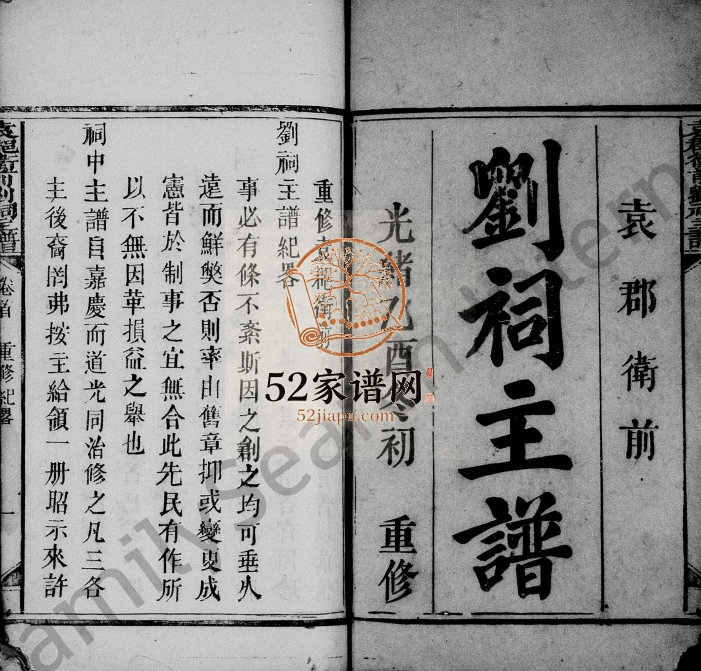 袁郡衛前
劉祠主譜
光緒乙酉初
重修
重修袁郡衛前
劉祠主譜紀畧
事必有條不紊斯因之創之均可垂久
遠而鮮獘否則率由舊章抑或變更成
憲皆於制事之宜無合此先民有作所
以不無因革損益之舉也
祠中主譜自嘉慶而道光同治修之凡三各
主後裔罔弗按主給領一册昭示來許
卷首
重修紀畧
一
52家谱网
52jiapu.com